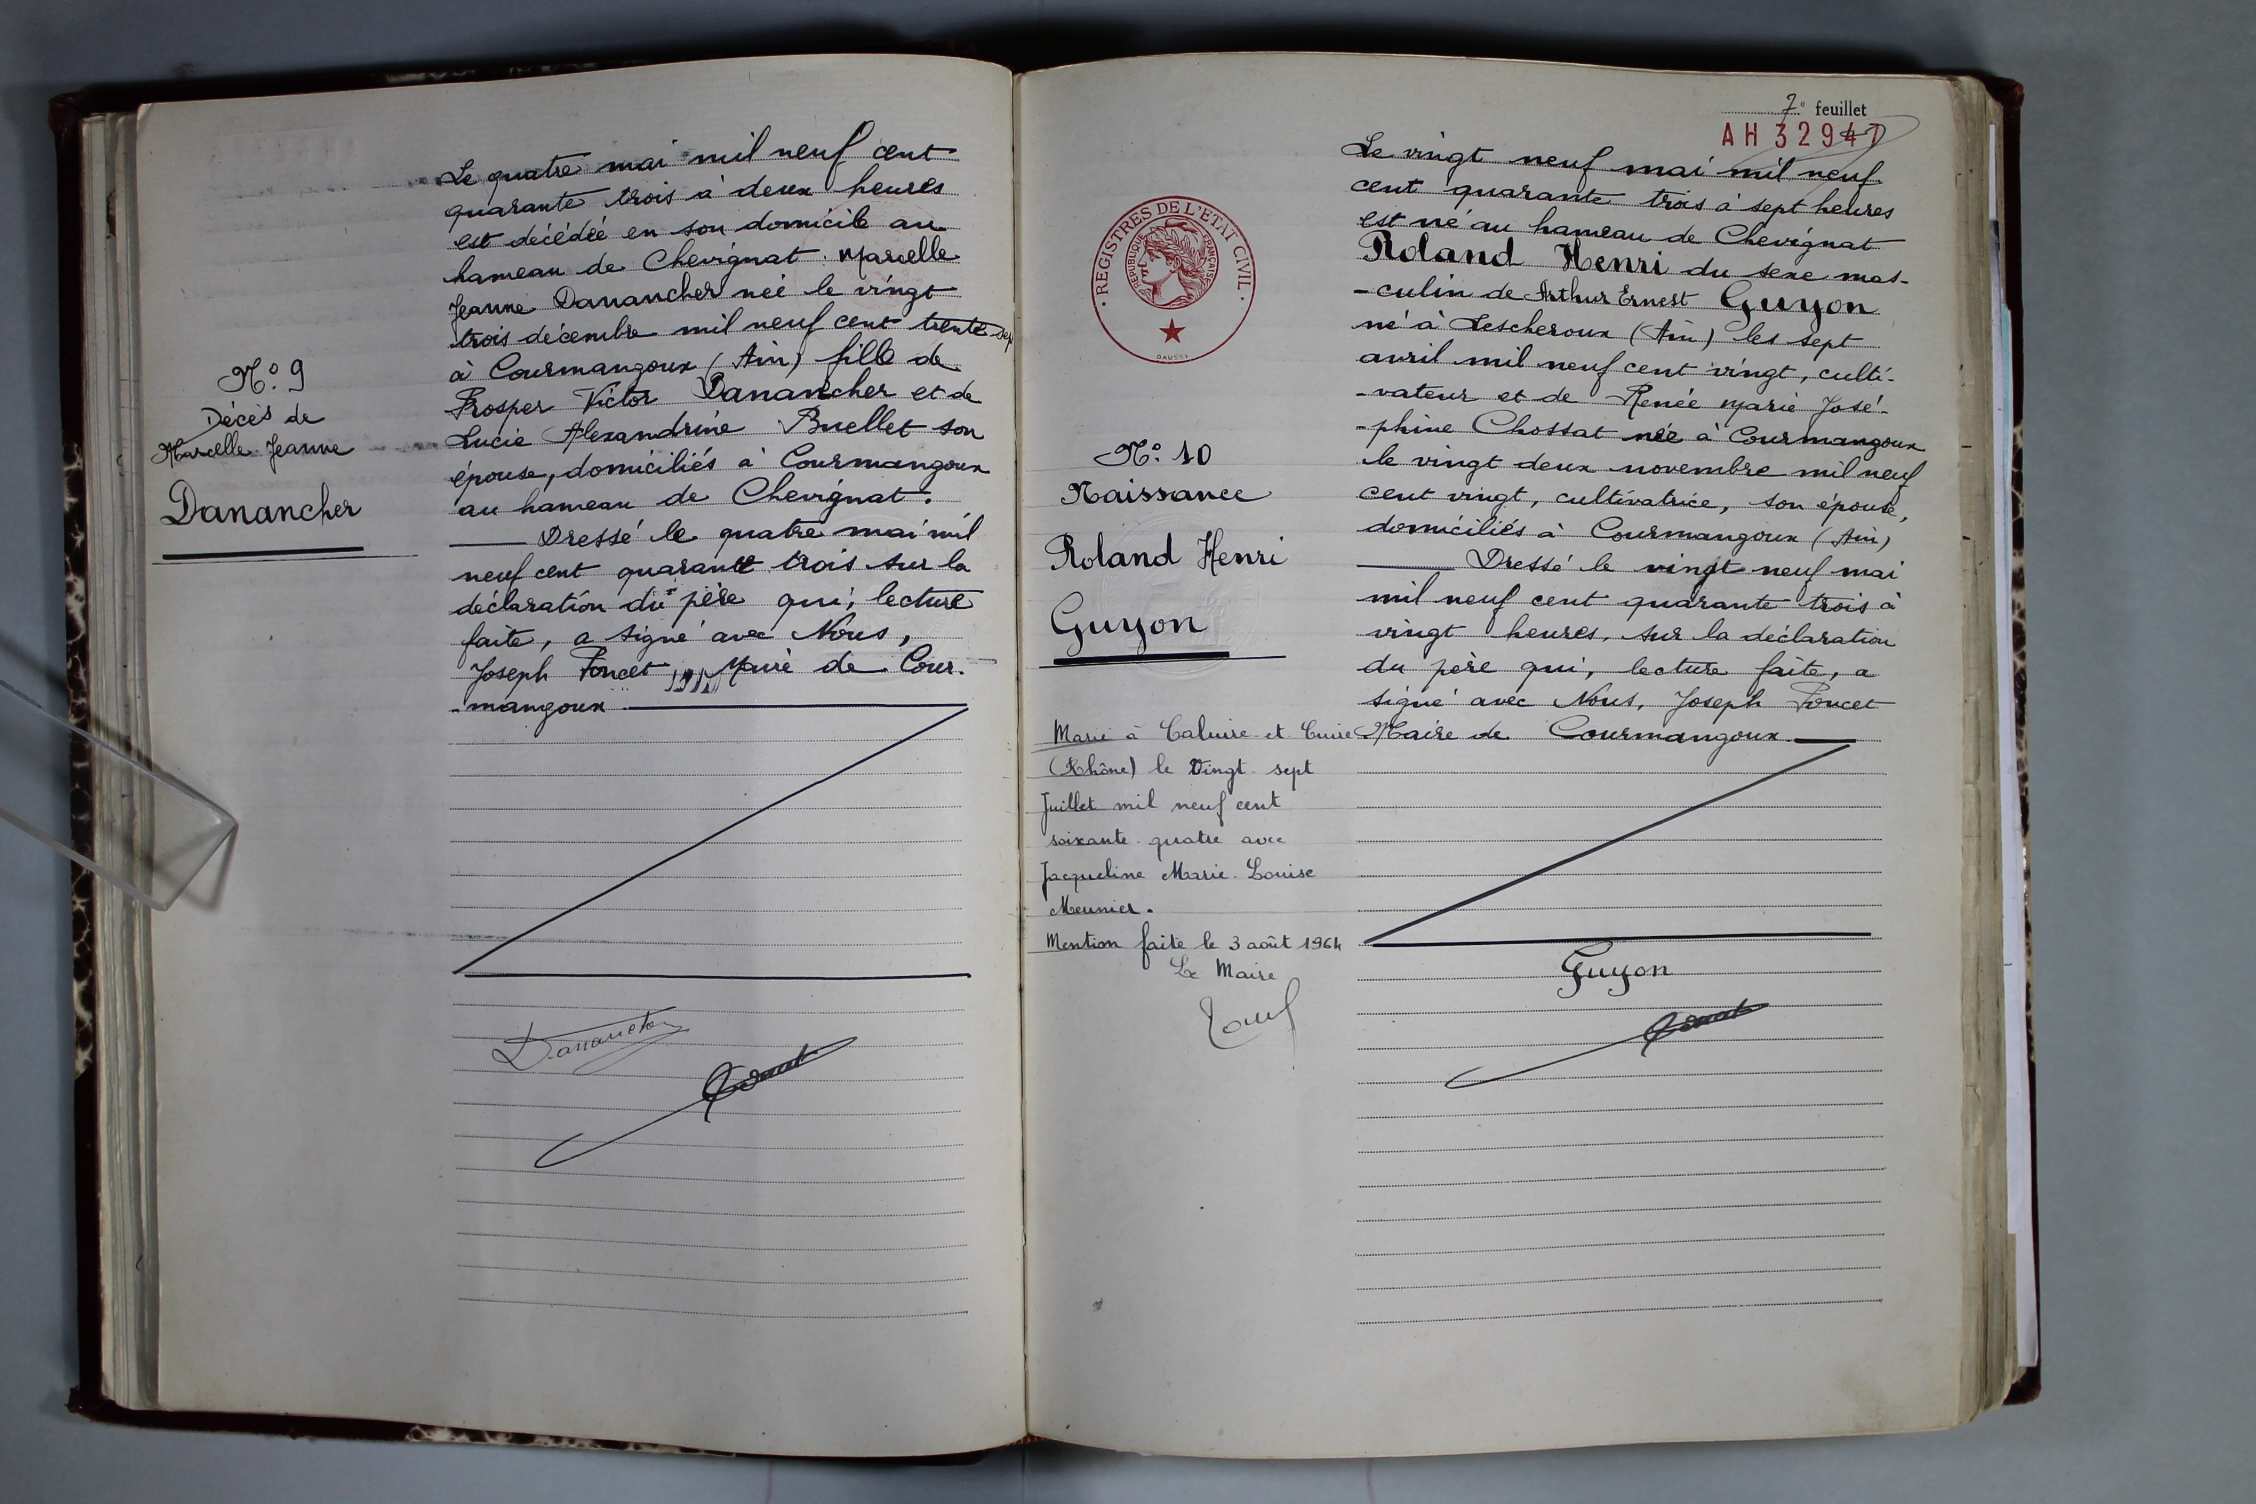 N° 9
Décès de
Marcelle Jeanne
Danancher
Le quatre mai mil neuf cent
quarante trois à deux heures
est décédée en son domicile au
hameau de Chevignat Marcelle
Jeanne Danancher née le vingt
trois décembre mil neuf cent trente sep
à Courmangoux (Ain) fille de
Prosper Victor Danancher et de
Lucie Alexandrine Buellet son
épouse, domiciliés à Courmangoux
au hameau de Chevignat.
Dressé le quatre mai mil
neuf cent quarante trois sur la
déclaration du père qui, lecture
faite, a signé avec Nous,
Joseph Poncet Maire de Cour-
-mangoux
Danancher
7e feuillet
AH 32947
REGISTRES DE L'ETAT CIVIL
REPUBLIQUE FRANÇAISE
DAUSSY
N° 10
Naissance
Roland Henri
Guyon
Marié à Caluire et Cuire
(Rhône) le Vingt-sept
Juillet mil neuf cent
soixante-quatre avec
Jacqueline Marie-Louise
Meunier.
Mention faite le 3 août 1964
Le Maire
Le vingt neuf mai mil neuf
cent quarante trois à sept heures
est né au hameau de Chevignat
Roland Henri du sexe mas-
-culin de Arthur Ernest Guyon
né à Lescheroux (Ain) les sept
avril mil neuf cent vingt, culti-
-vateur et de Renée Marie José-
-phine Chossat née à Courmangoux
le vingt deux novembre mil neuf
cent vingt, cultivatrice, son épouse,
domiciliés à Courmangoux (Ain)
Dressé le vingt neuf mai
mil neuf cent quarante trois à
vingt heures, sur la déclaration
du père qui, lecture faite, a
signé avec Nous, Joseph Poncet
Maire de Courmangoux
Guyon